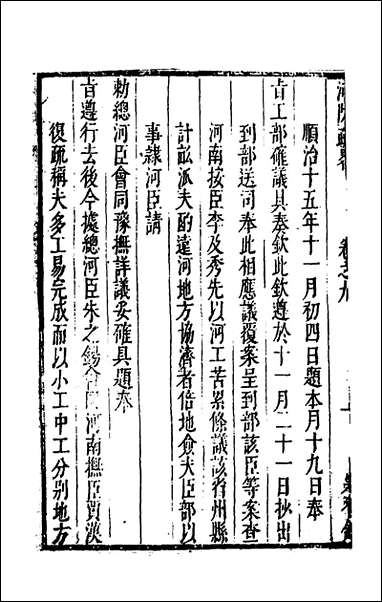 順治十五年十一月初四日題本月十九日奉
旨工部確議具奏欽此欽遵於十一月二十一日抄出
到部送司奉此相應議覆案呈到部該臣等案查
河南按臣李及秀先以河工苦累條議該省州縣
計畝派夫酌遠河地方協濟者倍地僉夫臣部以
事隷河臣請
勅總河臣會同豫撫詳議妥確具題奉
旨遵行去後今據總河臣朱之錫會同河南撫臣賈漢
復疏稱夫多工易完成而以小工中工分別地方